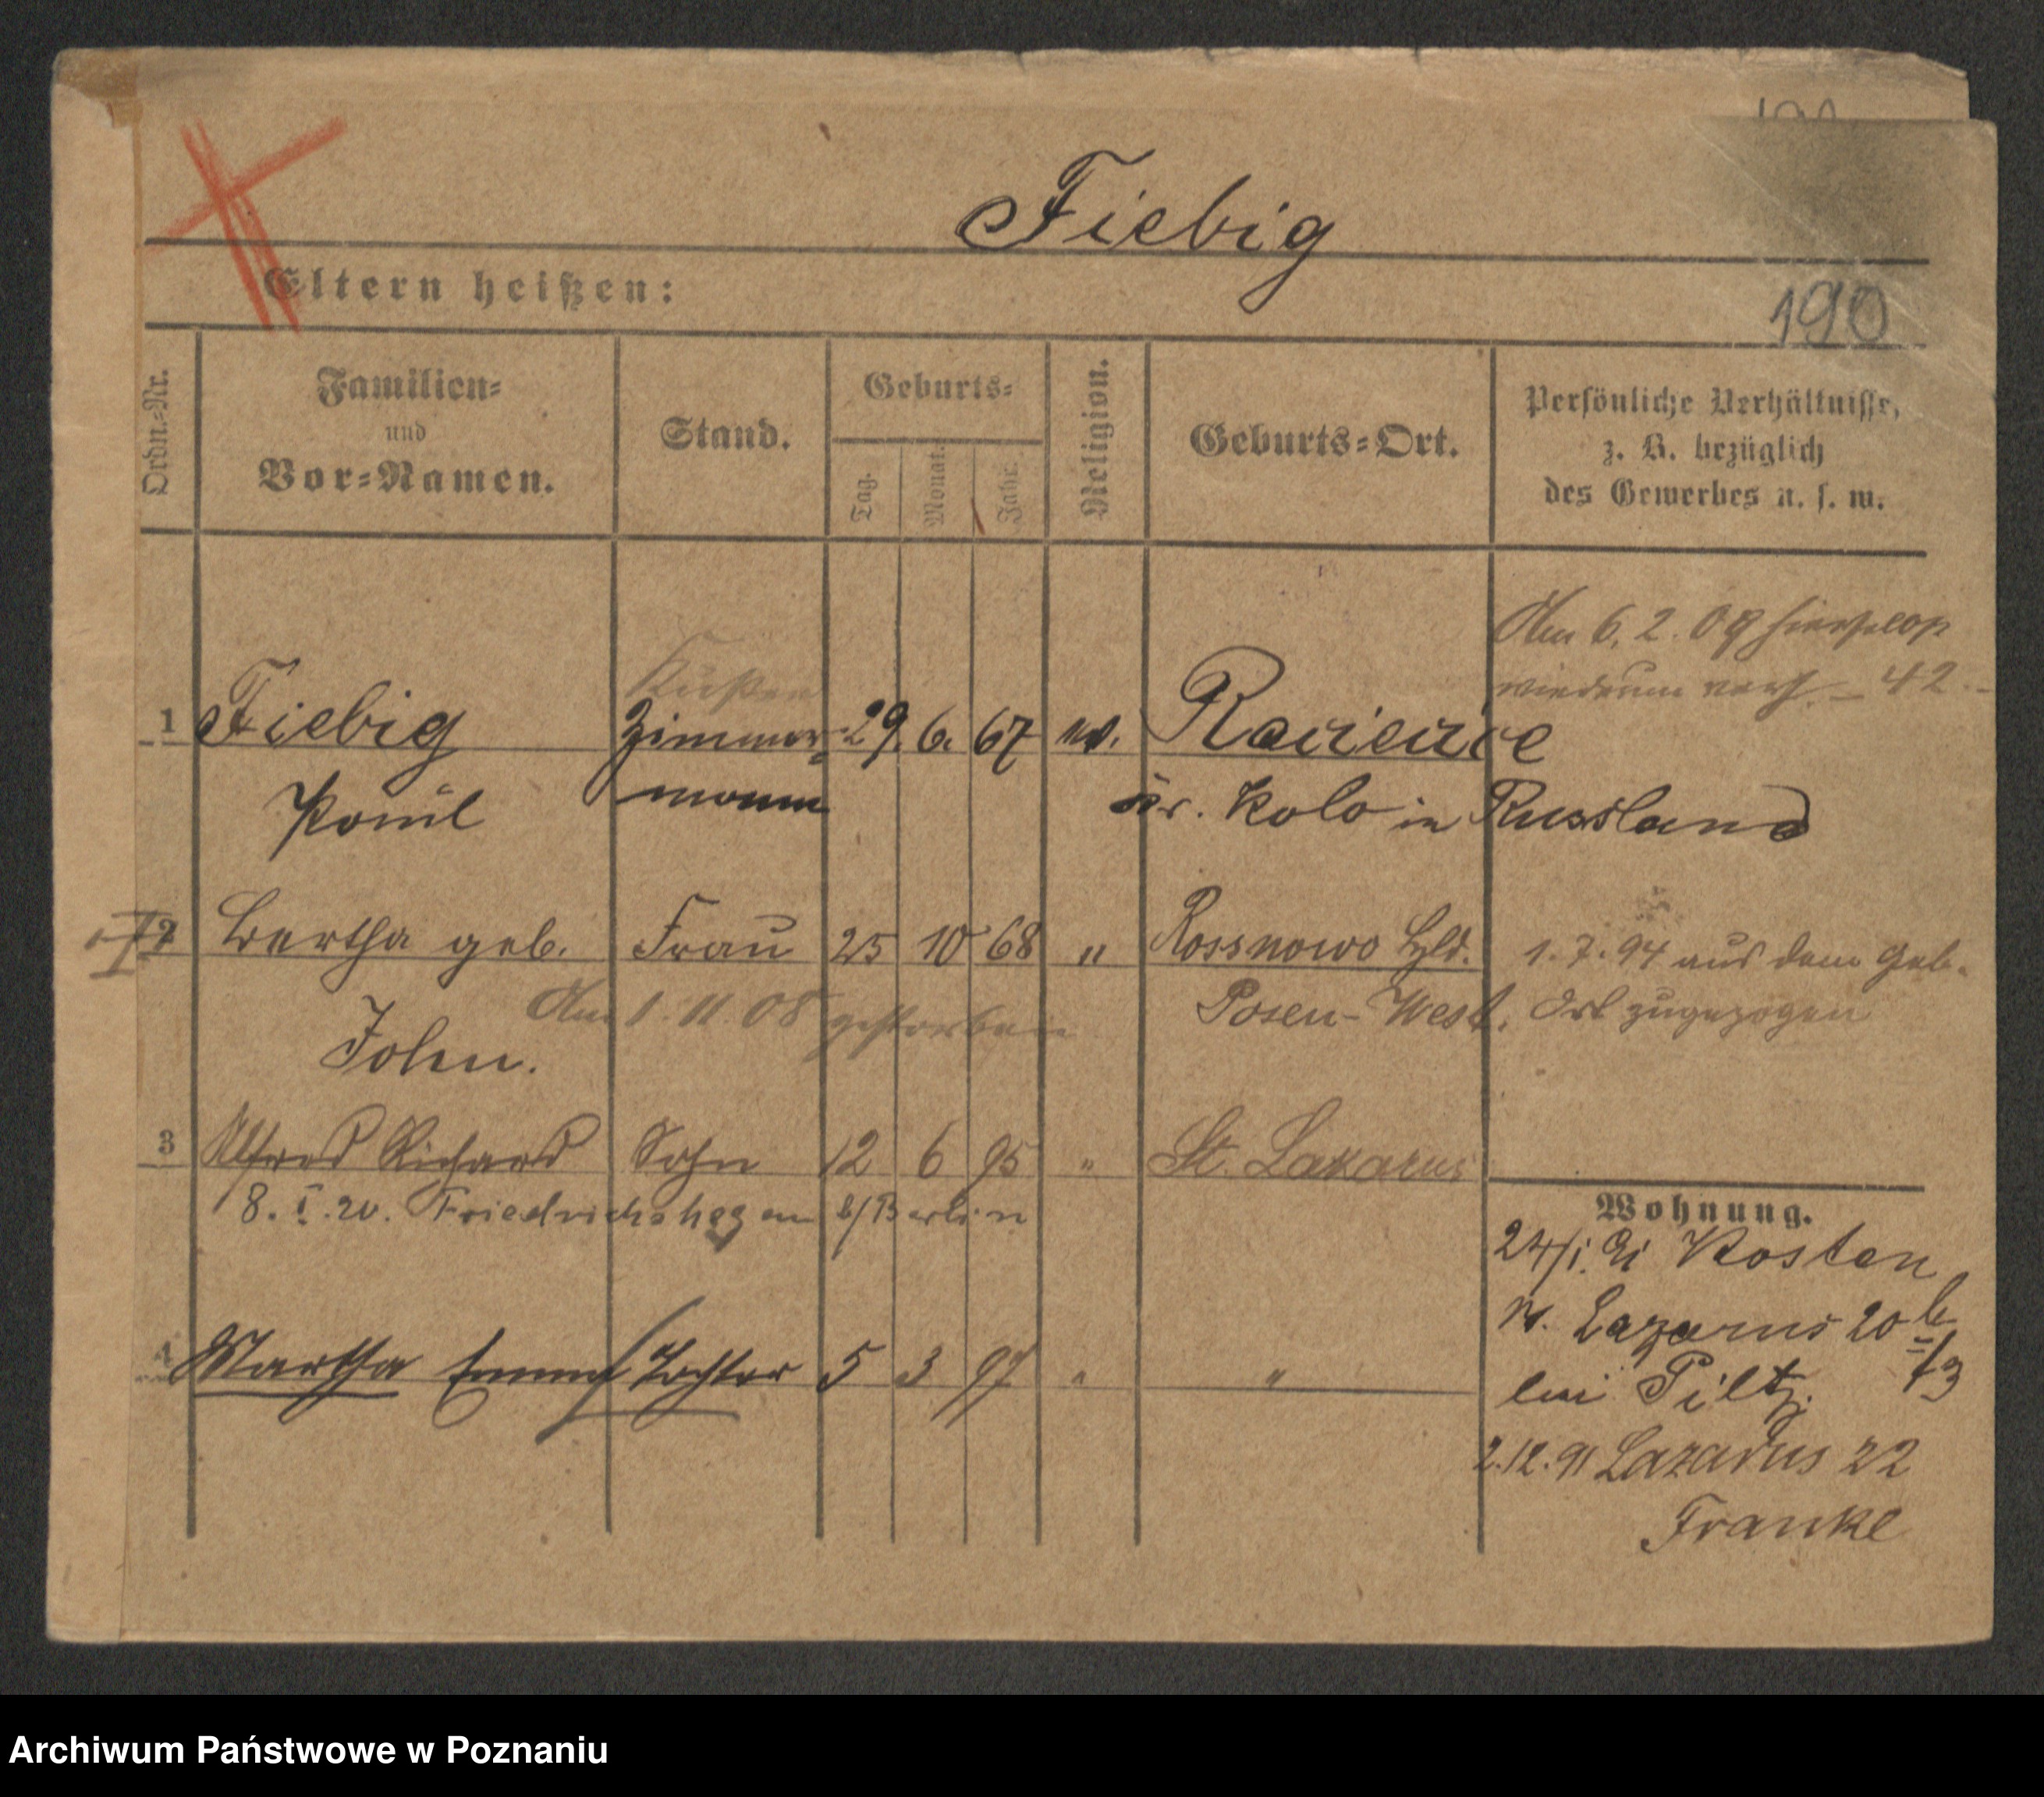 Fiebig
Eltern heißen:
190
Ordn.-Nr.
Familien-
und
Vor-Namen.
Stand.
Geburts-
Tag.
Monat.
Jahr.
Religion.
Geburts-Ort.
Persönliche Verhältnisse,
z. B. bezüglich
des Gewerbes u. s. w.
Am 6. 2. 09
wiederum 42
1 Fiebig Zimmer- 29. 6. 67 ev.
Paul mann Kr. Kolo in Russland
2 Bertha geb. Frau 25 10 68 " Rossnowo 1. 7. 94 aus dem Geb.
Am 1. 11. 08 gestorben Posen-West. Ort zugezogen
John.
3 Alfred Richard Sohn 12 6 95 " St. Lazarus
8. I. 20. Friedrichshagen b/Berlin
Wohnung.
24/1. 91 Kosten
n. Lazarus 20 b
4 Martha Emma Tochter 5 3 97 " "
bei Piltz.
2.12.91 Lazarus 22
Franke
Archiwum Państwowe w Poznaniu